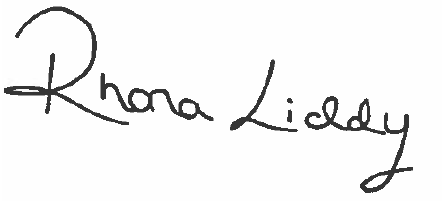 Rhona Liddy